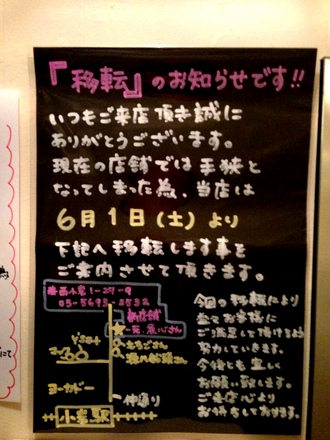 『移転』のお知らせです!!
いつもご来店頂き誠に
ありがとうございます。
現在の店舗では手狭と
なってしまった為、当店は
6月1日(土)より
下記へ移転します事を
ご案内させて頂きます。
西小岩1-27-9
新店舗
ヨーカドー
仲通り
小岩駅
今回の移転により
益々お客様に
ご満足して頂けるよう
努力していきます。
今後とも宜しく
お願い致します。
ご来店心より
お待ちしております。